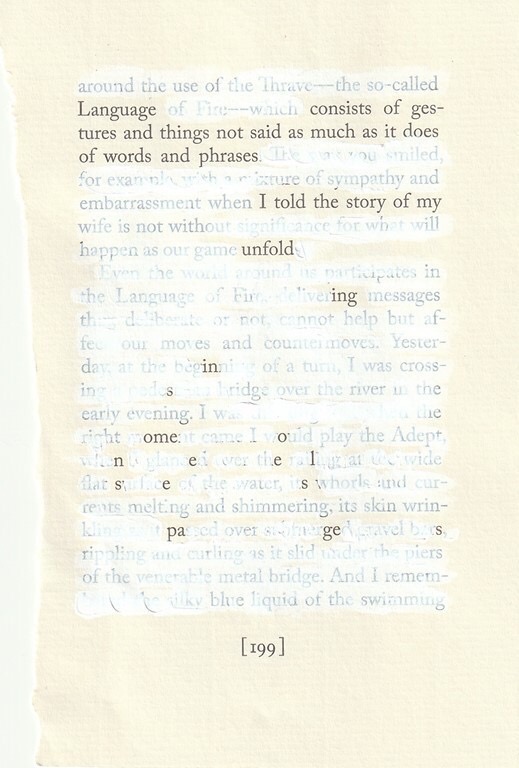 around the use of the Thrave—the so-called
Language of Fire—which consists of ges-
tures and things not said as much as it does
of words and phrases. The way you smiled,
for example, with a mixture of sympathy and
embarrassment when I told the story of my
wife is not without significance for what will
happen as our game unfolds
Even the world around us participates in
the Language of Fire, delivering messages
that, deliberate or not, cannot help but af-
fect our moves and countermoves. Yester-
day, at the beginning of a turn, I was cross-
ing bridge over the river in the
early evening. I was the
right moment came I would play the Adept,
when I glanced over the railing at the wide
flat surface of the water, its whorls and cur-
rents melting and shimmering, its skin wrin-
kling passed over submerged gravel bars,
rippling and curling as it slid under the piers
of the venerable metal bridge. And I remem-
the silky blue liquid of the swimming
[199]